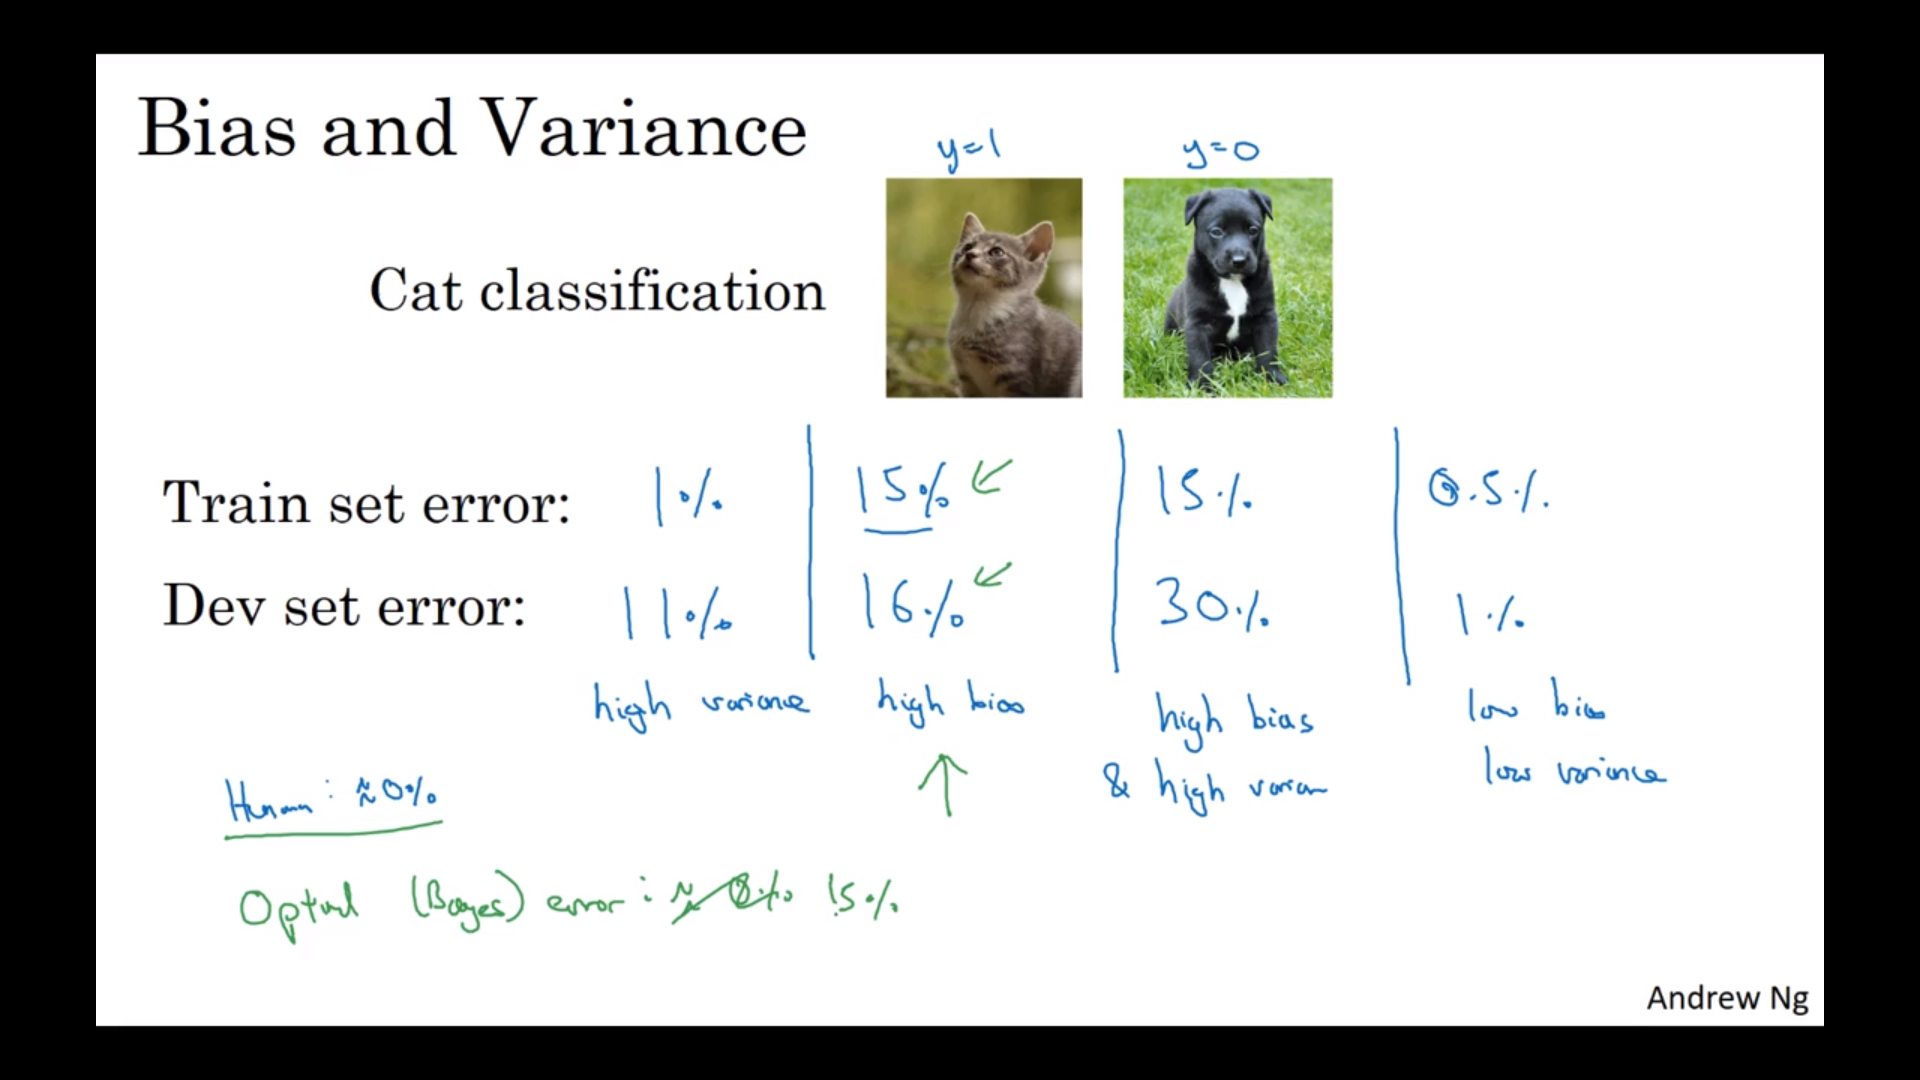 Bias and Variance
y=1 y=0
Cat classification
Train set error: 1% 15% 15% 0.5%
Dev set error: 11% 16% 30% 1%
high variance high bias high bias low bias
& high varian low variance
Human: ≈0%
Optimal (Bayes) error: ≈ 0% 15%
Andrew Ng